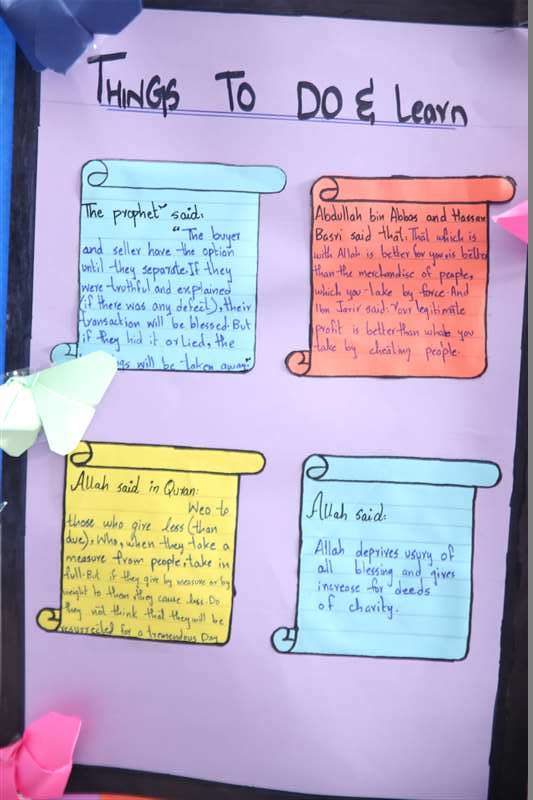 THINGS TO DO & Learn
The prophet said:
"The buyer
and seller have the option
until they separate. If they
were truthful and explained
(if there was any defect), their
transaction will be blessed. But
if they hid it or Lied, the
will be taken away."
Abdullah bin Abbas and Hassan
Basri said that: That which is
with Allah is better for you, is better
than the merchandise of people,
which you take by force. And
Ibn Jarir said: Your legitimate
profit is better than what you
take by cheating people.
Allah said in Quran:
Weo to
those who give less (than
due), Who, when they take a
measure from people, take in
full. But if they give by measure or by
weight to them, they cause less. Do
they not think that they will be
resurrected for a tremendous Day
Allah said:
Allah deprives usury of
all blessing and gives
increase for deeds
of charity.